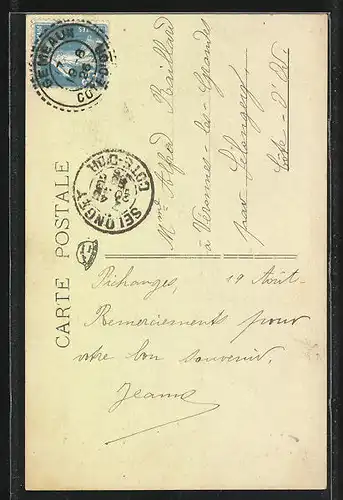 CARTE POSTALE
SELONGEY
COTE-D'OR
Mme Alfred Raillard
à Véronnes-les-Grandes
par Selongey
Côte-d'Or
Pichanges, 19 Août
Remerciements pour
votre bon souvenir.
Jeanne